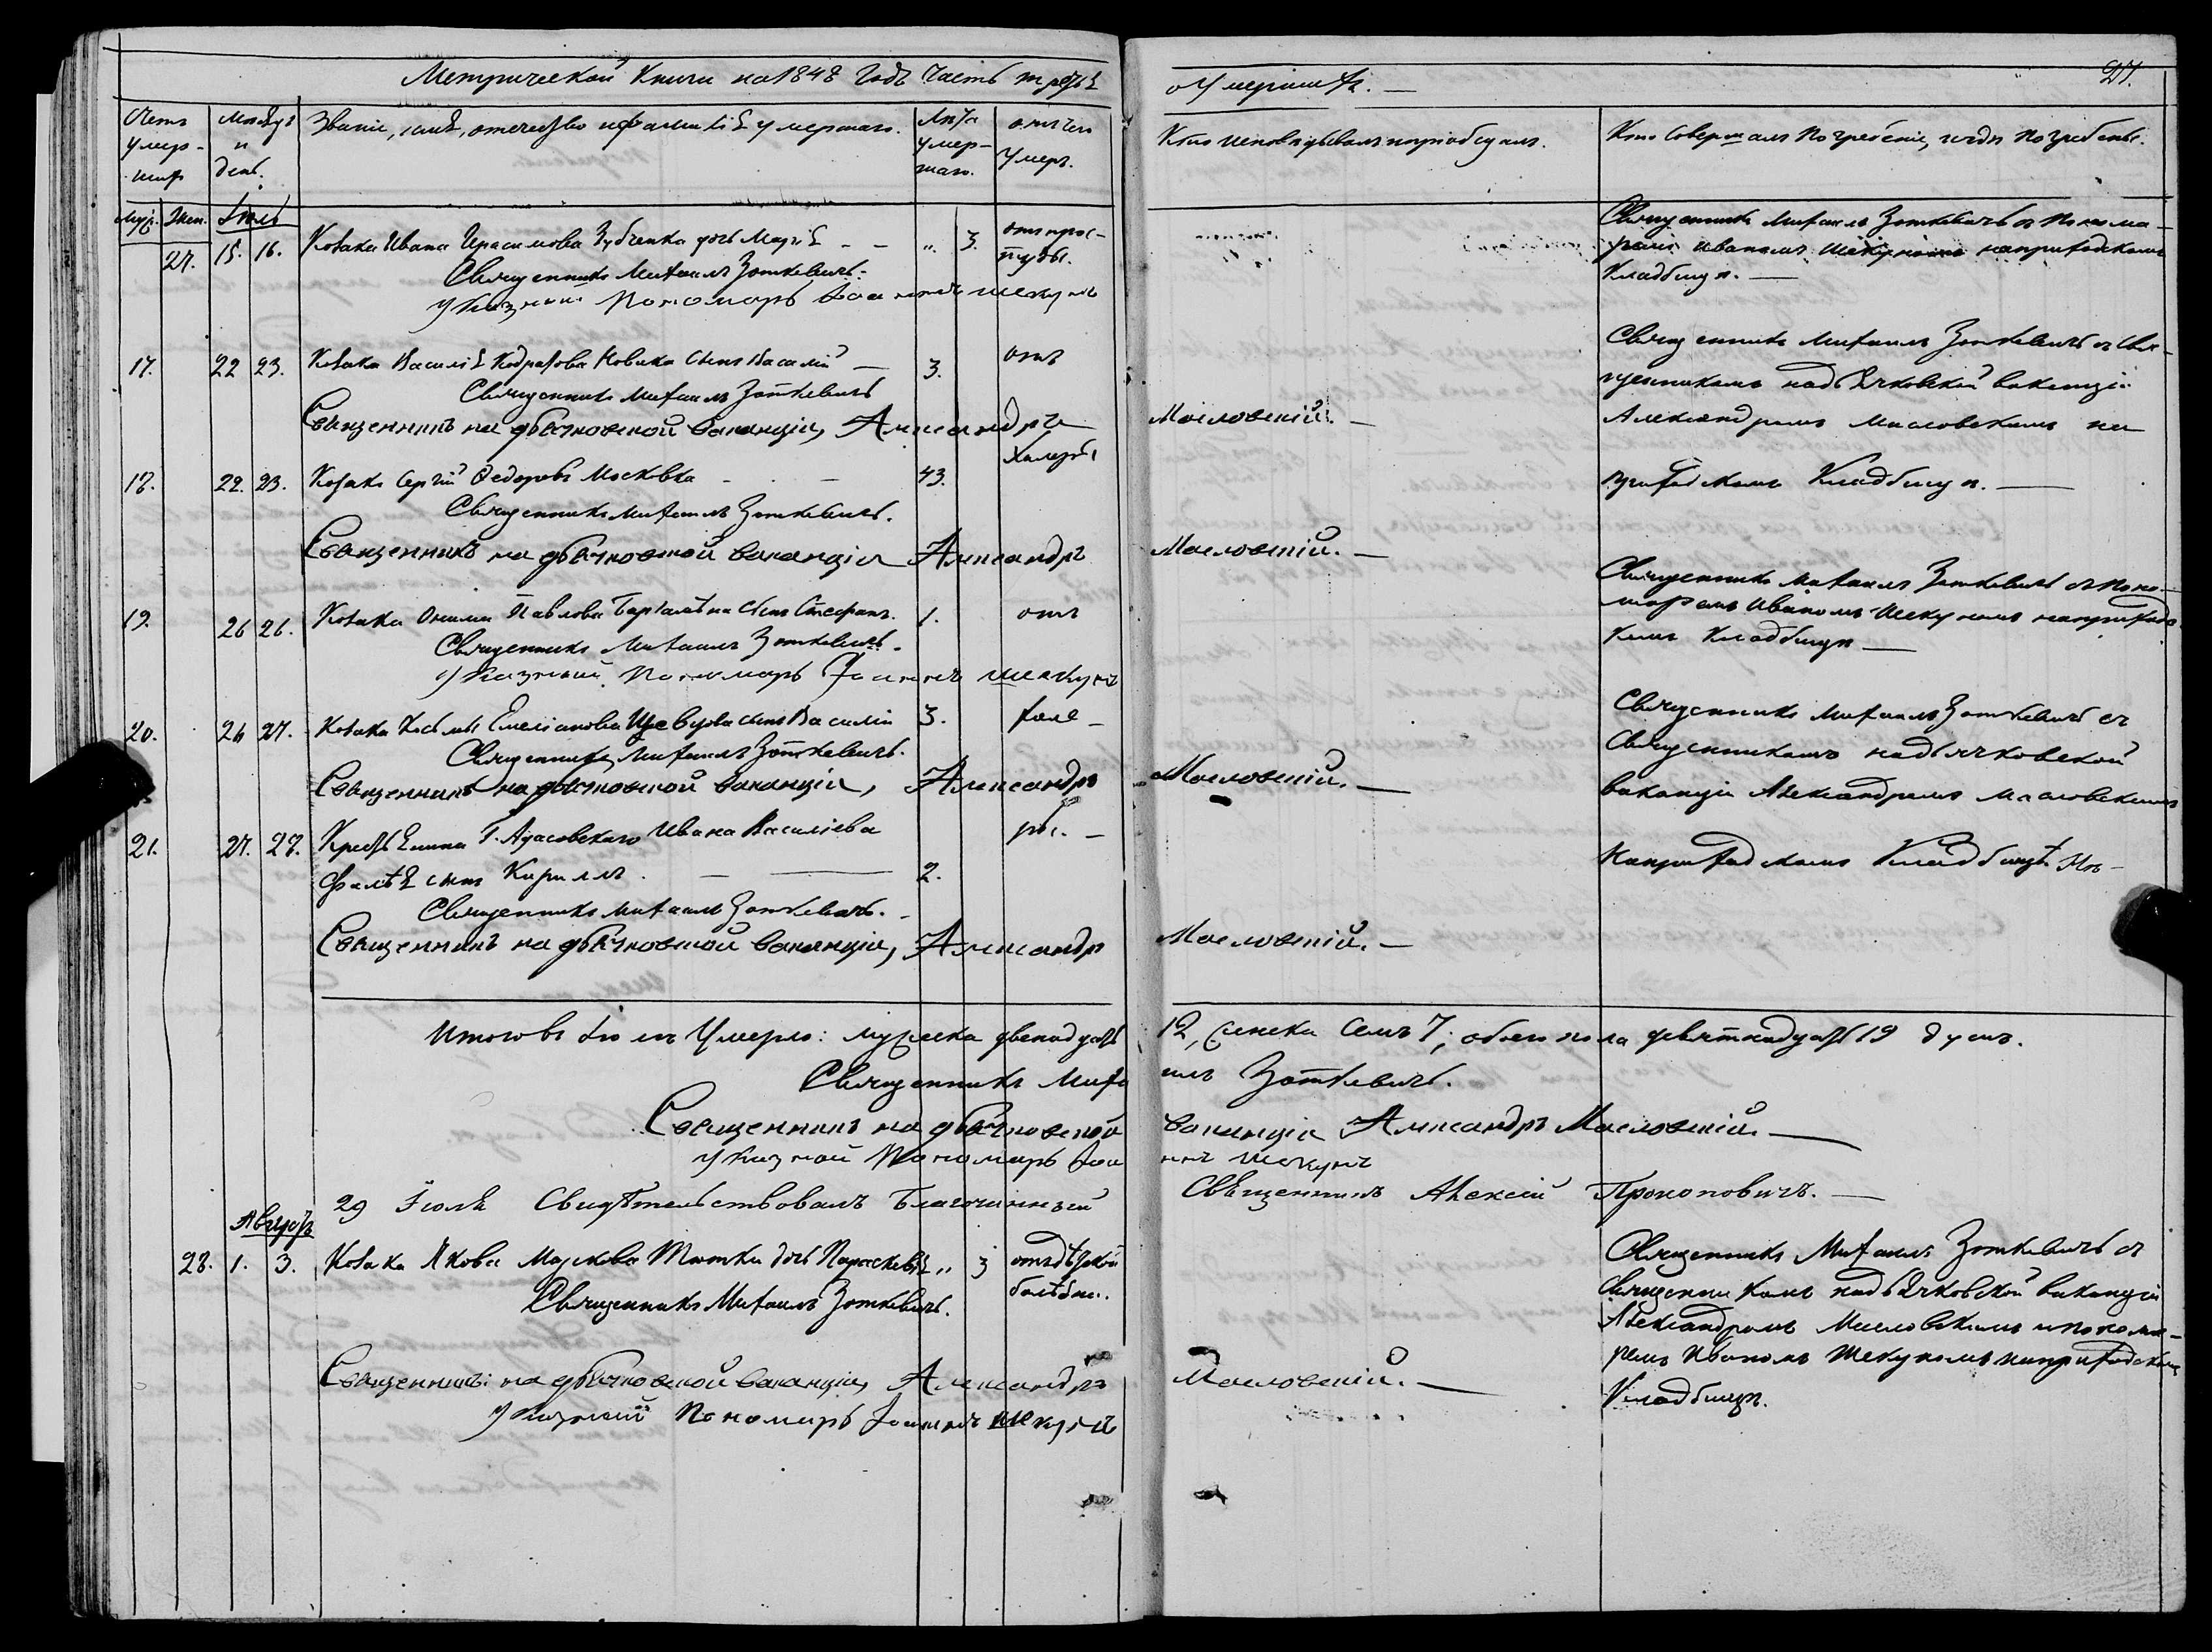 Метрической Книги на 1848 Годъ Часть третья
о Умершихъ. —
27.
Счетъ умер- шихъ
Мѣсяцъ и день.
Званіе, имя, отечество и фамилія умершаго.
Лѣта умер- шаго.
отъ чего умеръ.
Кто исповѣдывалъ и пріобщалъ.
Кто совершалъ погребеніе, и гдѣ погребены.
Муж. Жен. Іюль
27. 15. 16. Козака Ивана Герасимова Зубченка дочь Марія - - „ 3. отъ прос-
туды.
Священникъ Михаилъ Зоткевичъ.
Указный Пономарь Іоаннъ Шекунъ
Священникъ Михаилъ Зоткевичъ съ Понома-
ремъ Иваномъ Шекуномъ на приходскомъ
Кладбищѣ. —
17. 22 23. Козака Василія Кодратова Новака сынъ Василій — 3. отъ
Священникъ Михаилъ Зоткевичъ
Священникъ на дьячковской ваканціи, Александръ Масловскій. —
Священникъ Михаилъ Зоткевичъ съ Свя-
щенникомъ на дьячковской ваканціи
Александромъ Масловскимъ на
18. 22. 23. Козакъ Сергій Федоровъ Московка - - 43. Холеры
Священникъ Михаилъ Зоткевичъ.
Священникъ на дьячковской ваканціи Александръ Масловскій. —
приходскомъ Кладбищѣ. —
19. 26 26. Козака Павлова сынъ Стефанъ. 1. отъ
Священникъ Михаилъ Зоткевичъ.
Указный Пономарь Іоаннъ Шекунъ
Священникъ Михаилъ Зоткевичъ съ Поно-
маремъ Иваномъ Шекуномъ на приходс-
комъ Кладбищѣ —
20. 26 27. Козака Косьмы Емеліанова сынъ Василій 3. холе-
Священникъ Михаилъ Зоткевичъ.
Священникъ на дьячковской ваканціи, Александръ Масловскій. —
Священникъ Михаилъ Зоткевичъ съ
Священникомъ на дьячковской
ваканціи Александромъ Масловскимъ
21. 27. 28. Крестьянина Г. Ивана Василіева ры. —
сынъ Кириллъ. — — 2.
Священникъ Михаилъ Зоткевичъ.
Священникъ на дьячковской ваканціи, Александръ Масловскій. —
на приходскомъ Кладбищѣ
Итого въ Іюлѣ Умерло: мужеска двенадцать 12, женска семь 7; обоего пола девятнадцать 19 душъ.
Священникъ Михаилъ Зоткевичъ.
Священникъ на дьячковской ваканціи Александръ Масловскій. —
Указной Пономарь Іоаннъ Шекунъ
29 Іюля Свидѣтельствовалъ Благочинный Священникъ Алексій Прокоповичъ. —
Августъ
28. 1. 3. Козака Якова Маркова дочь Параскевія „ 3 отъ дѣтской
болѣзни.
Священникъ Михаилъ Зоткевичъ.
Священникъ на дьячковской ваканціи, Александръ Масловскій. —
Указный Пономарь Іоаннъ Шекунъ
Священникъ Михаилъ Зоткевичъ съ
Священникомъ на дьячковской ваканціи
Александромъ Масловскимъ и понома-
ремъ Иваномъ Шекуномъ на приходскомъ
Кладбищѣ.